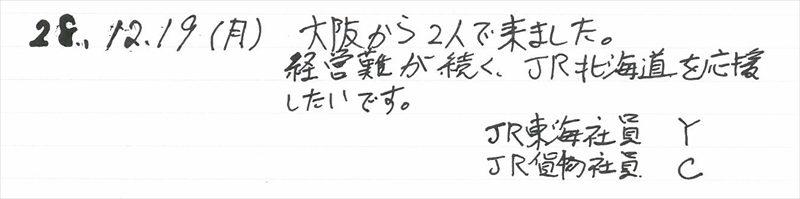 28.12.19(月) 大阪から2人で来ました。
経営難が続く、JR北海道を応援
したいです。
JR東海社員 Y
JR貨物社員 C